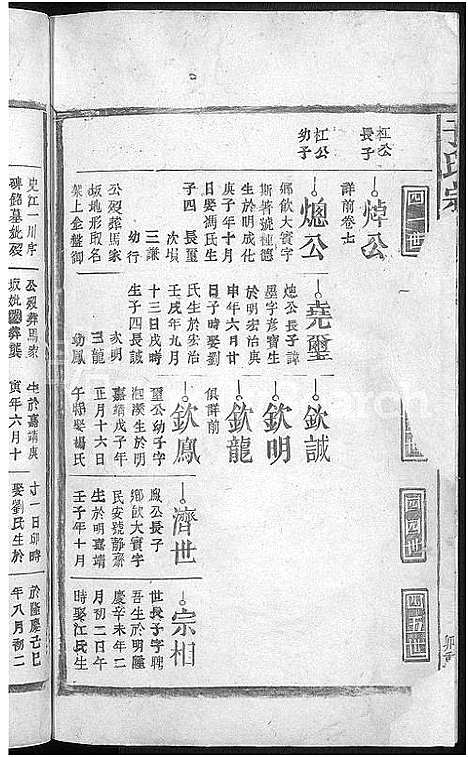 四一世
四四世
四五世
杠公
長子
焯公
詳前卷七
杠公
幼子
熜公
鄉飲大賓字
斯著號種德
生於明成化
庚子年十月
日娶馮氏生
子四 長璽
次塤
三謙
幼行
公殁葬馬家
坂地形取名
架上金盤御
堯璽
熜公長子諱
墨字彥寶生
於明宏治庚
申年六月廿
日子時娶劉
氏生於宏治
壬戌年九月
十三日戌時
生子四長誠
次明
三龍
幼鳳
公殁葬馬家
欽誠
欽明
欽龍
俱詳前
欽鳳
璽公幼子字
生於明
嘉靖戊子年
正月十六日
午時娶楊氏
生於嘉靖庚
寅年六月十
濟世
鳳公長子
鄉飲大賓字
民安號靜齋
生於明嘉靖
壬子年十月
十一日卯時
娶劉氏生於
宗相
世長子字聘
吾生於明隆
慶辛未年二
月初二日午
時娶江氏生
於隆慶己巳
年八月初二